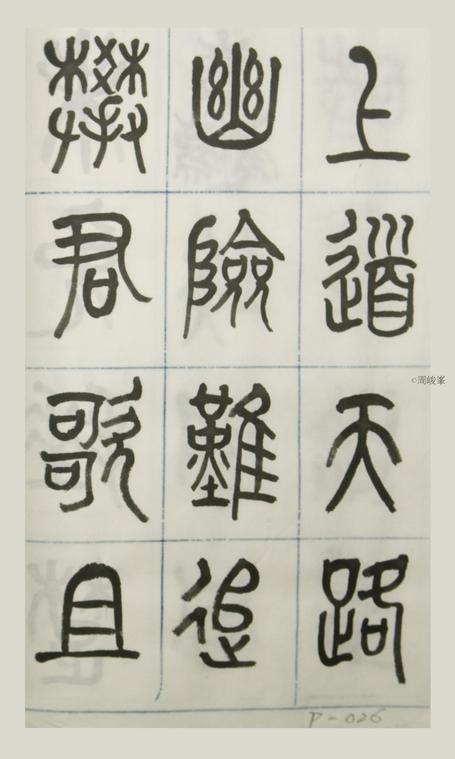 上道天路
幽險難追
攀君歌且
©周峻峯
P-026